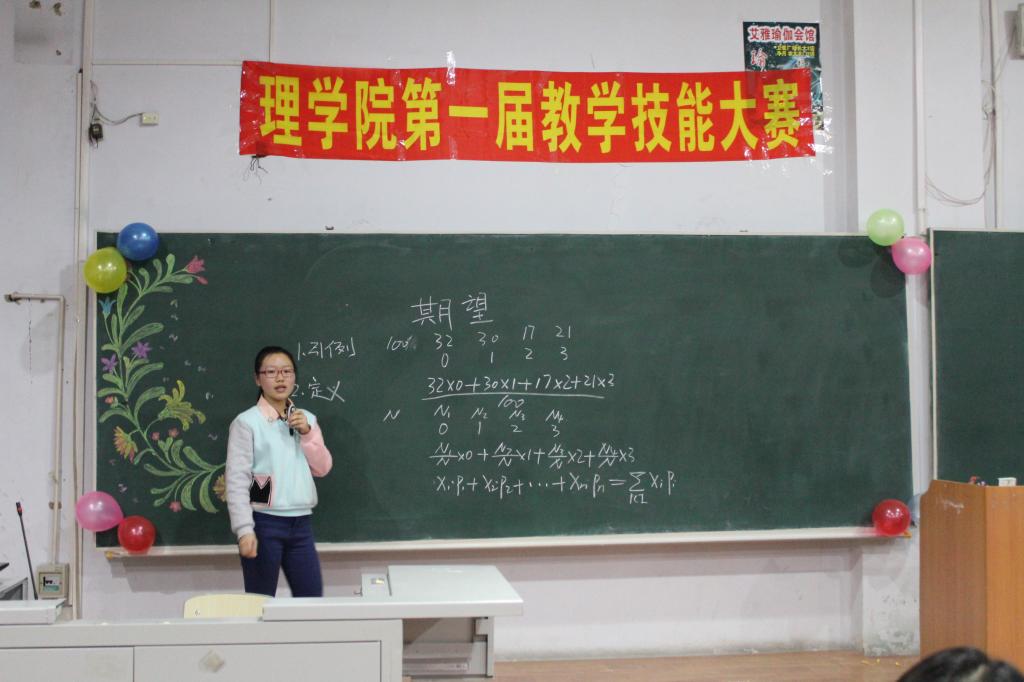 艾雅瑜伽会馆
瑜
理学院第一届教学技能大赛
期望
1.引例 100 32 30 17 21
0 1 2 3
2.定义 32×0+30×1+17×2+21×3
100
N N₁ N₂ N₃ N₄
0 1 2 3
N₁/N×0+N₂/N×1+N₃/N×2+N₄/N×3
x₁p₁+x₂p₂+⋯+xₙpₙ=∑xᵢpᵢ